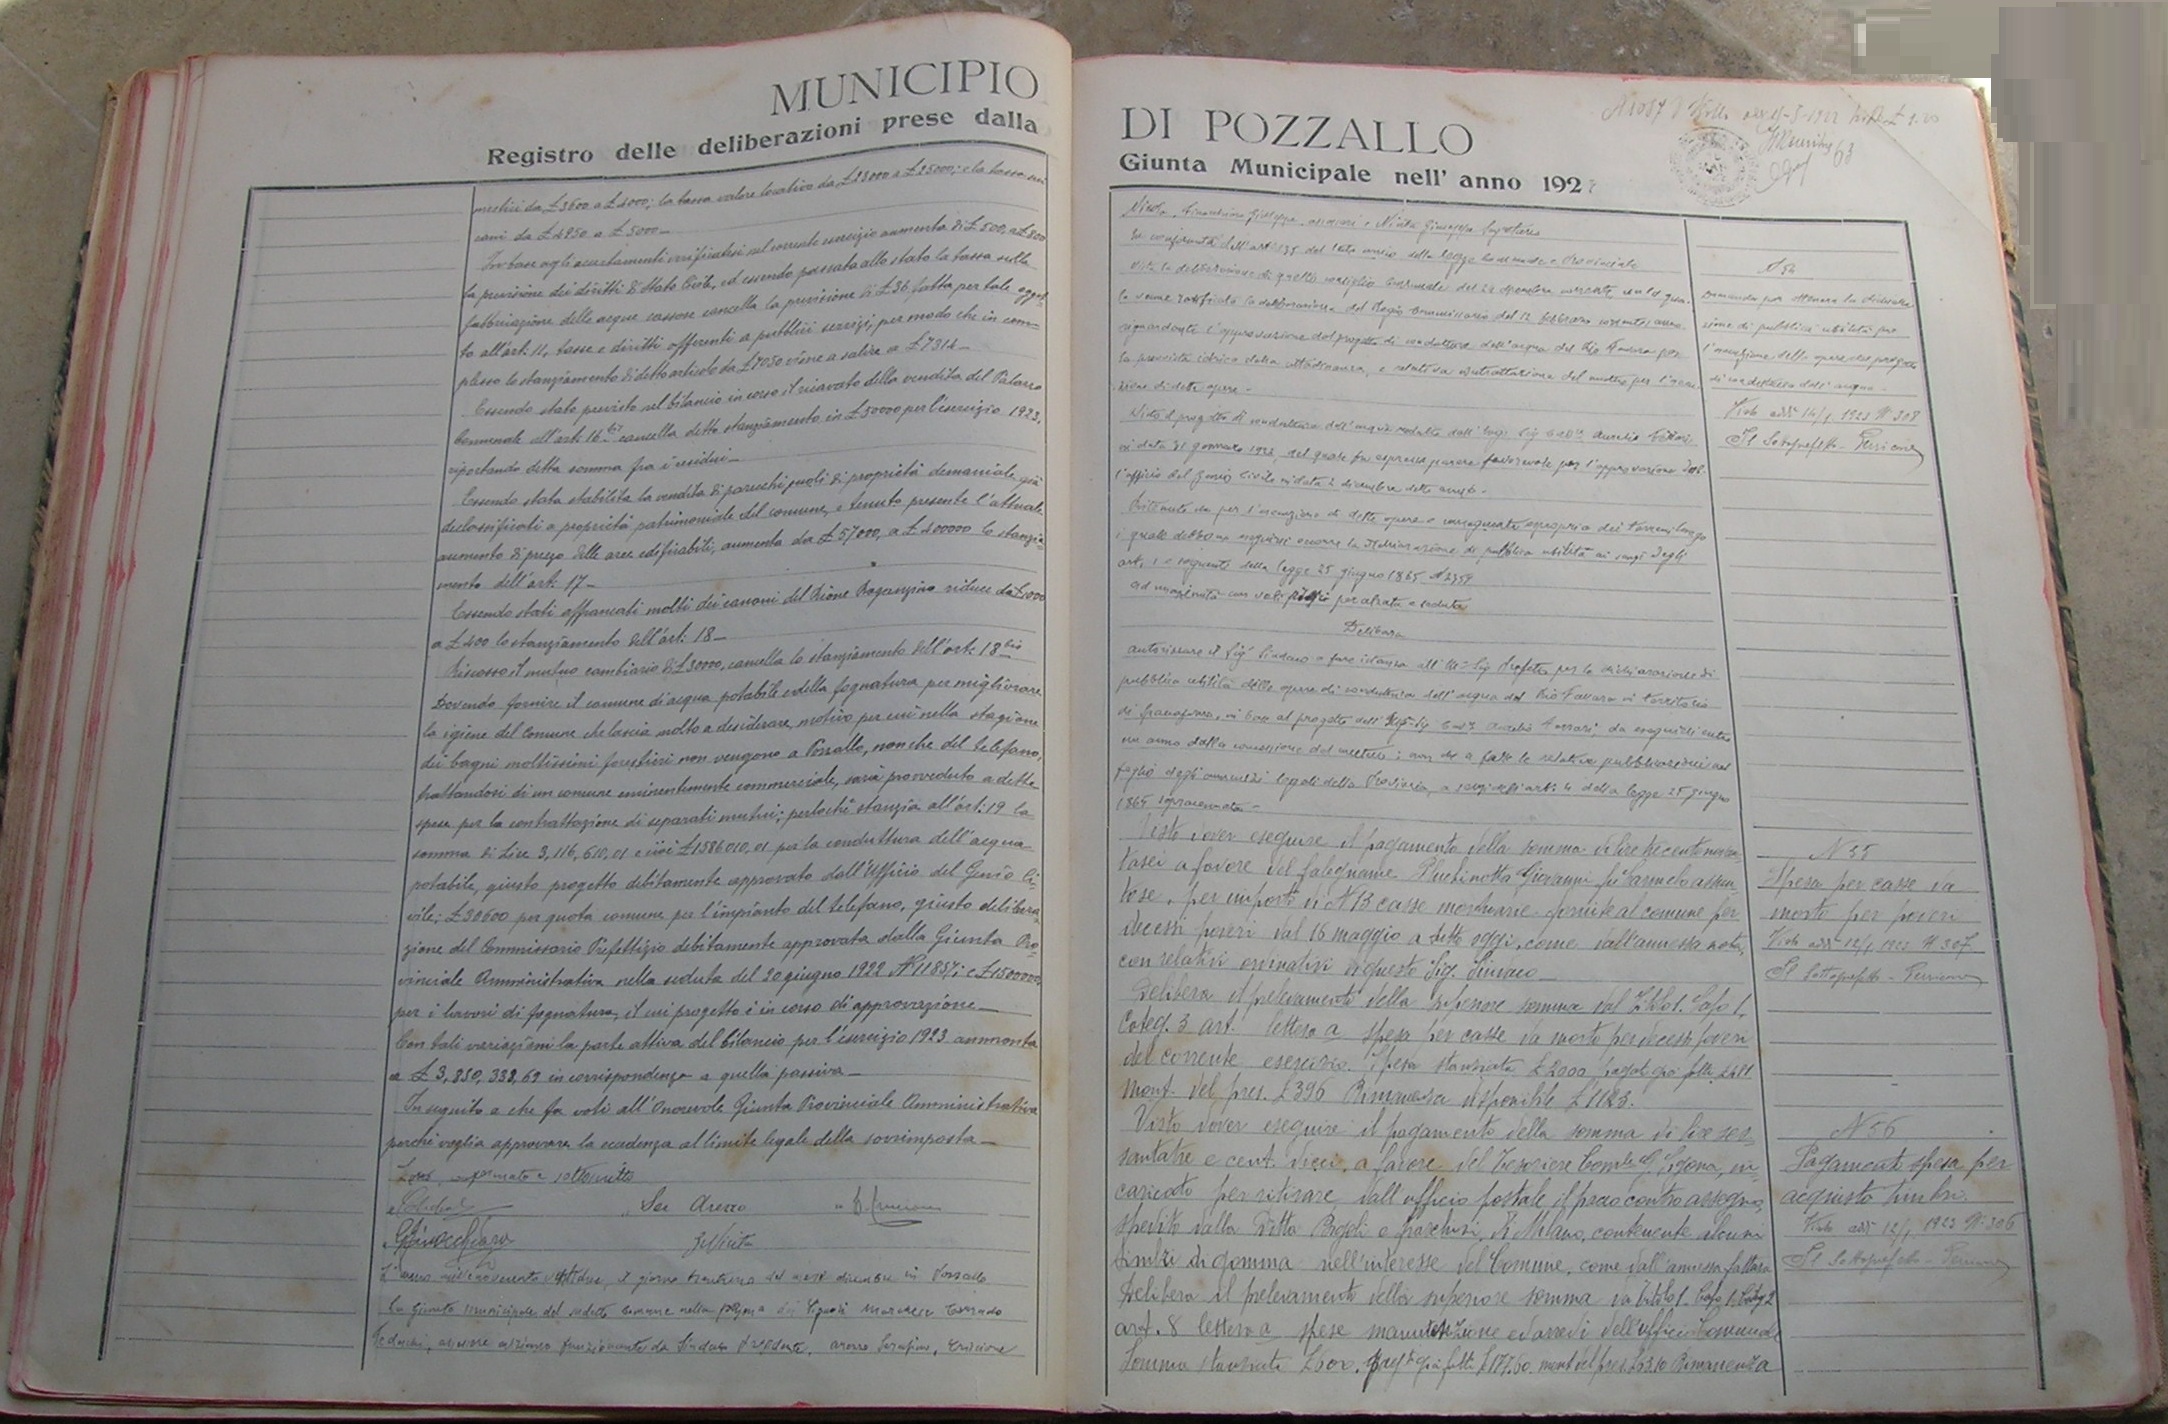 MUNICIPIO
Registro delle deliberazioni prese dalla
mestici da £ 3600 a £ 4000; la tassa valore locativo da £ 23000 a £ 25000; e la tassa sui
cani da £ 4950 a £ 5000 _
In base agli accertamenti verificatisi nel corrente esercizio aumenta di £ 500, a £ 800
la previsione dei diritti di Stato Civile, ed essendo passata allo stato la tassa sulla
fabbricazione delle acque gassose cancella la previsione di £ 36 fatta per tale ogget-
to all'art. 11, tasse e diritti offerenti a pubblici servizi, per modo che in com=
plesso lo stanziamento di detto articolo da £ 7050 viene a salire a £ 7314 _
Essendo stato previsto nel bilancio in corso il ricavato della vendita del Palazzo
Comunale all'art. 16 bis cancella detto stanziamento in £ 50000 per l'esercizio 1923,
riportando detta somma fra i residui _
Essendo stata stabilita la vendita di parecchi suoli di proprietà demaniale già
declassificati a proprietà patrimoniale del comune, e tenuto presente l'attuale
aumento di prezzo delle aree edificabili, aumenta da £ 57000, a £ 400000 lo stanzia=
mento dell'art. 17 _
Essendo stati affrancati molti dei canoni del Rione Raganzino riduce da £ 1000
a £ 400 lo stanziamento dell'art. 18 _
Riscosso il mutuo cambiario di £ 30000, cancella lo stanziamento dell'art. 18 bis
Dovendo fornire il comune di acqua potabile e della fognatura per migliorare
la igiene del Comune che lascia molto a desiderare, motivo per cui nella stagione
dei bagni moltissimi forestieri non vengono a Pozzallo, nonchè del telefono,
trattandosi di un comune eminentemente commerciale, sarà provveduto a dette
spese per la contrattazione di separati mutui; perlochè stanzia all'art. 19 la
somma di Lire 3,116,610,01 e cioè £ 1586010,01 per la conduttura dell'acqua
potabile, giusto progetto debitamente approvato dall'Ufficio del Genio Ci-
vile; £ 30600 per quota comune per l'impianto del telefono, giusto delibera-
zione del Commissario Prefettizio debitamente approvata dalla Giunta Pro-
vinciale Amministrativa nella seduta del 20 giugno 1922 N° 11857; e £ 1500000
per i lavori di fognatura, il cui progetto è in corso di approvazione _
Con tali variazioni la parte attiva del bilancio per l'esercizio 1923 ammonta
a £ 3,850,338,69 in corrispondenza a quella passiva _
In seguito a che fa voti all'Onorevole Giunta Provinciale Amministrativa
perchè voglia approvare la eccedenza al limite legale della sovrimposta _
Letto, confermato e sottoscritto
Ser Arezzo
G Finocchiaro
L'anno millenovecento ventidue, il giorno trentuno del mese dicembre in Pozzallo
La Giunta municipale del sudetto comune nella persona dei Signori
assessore anziano funzionante da Sindaco Presidente, Arezzo Serafino,
DI POZZALLO
Giunta Municipale nell' anno 192
63
Giuseppe assessori e Nicita Giuseppe Segretario
In conformità dell'art. 135 del testo unico della legge Comunale e Provinciale
Vista la deliberazione di questo consiglio Comunale del
le venne ratificata la deliberazione del Regio Commissario del 12 febbraio corrente anno
riguardante l'approvazione del progetto di conduttura dell'acqua del Rio Favara per
la provvista idrica della cittadinanza, e relativa contrattazione del mutuo per l'esecu-
zione di dette opere -
Visto il progetto di conduttura dell'acqua redatto dall'Ing. Sig. Cav. Aurelio
in data 31 gennaio 1922, nel quale fu espresso parere favorevole per l'approvazione dal-
l'ufficio del Genio Civile in data 2 dicembre detto anno -
Ritenuto che per l'esecuzione di dette opere e conseguente esproprio dei terreni lungo
i quali debbono eseguirsi occorre la dichiarazione di pubblica utilità ai sensi degli
art. 1 e seguenti della legge 25 giugno 1865 N 2359
Ad unanimità con voti per alzata e seduta
Delibera
autorizzare il Sig. Sindaco a fare istanza all'Ill. Sig. Prefetto per la dichiarazione di
pubblica utilità delle opere di conduttura dell'acqua del Rio Favara in territorio
di in base al progetto dell'Ing. Sig. Cav. Aurelio da eseguirsi entro
un anno dalla concessione del mutuo; non che a fare le relative pubblicazioni nel
foglio degli annunzi legali della Provincia, a sensi dell'art. 4 della legge 25 giugno
1865 sopracennata -
Visto dover eseguire il pagamento della somma di lire trecentonovan-
tasei a favore del falegname Giovanni fu Carmelo
per importo di N 13 casse mortuarie fornite al comune per
decessi poveri dal 16 maggio a tutto oggi, come dall'annessa nota,
con relativi ordinativi di questo Sig. Sindaco
Delibera il prelevamento della superiore somma dal Titolo 1. Capo 1.
Categ. 3 art. lettera a spesa per casse da morto per decessi poveri
del corrente esercizio. Spesa stanziata £ 2000 pagati già fatti £ 481
mont. del pres. £ 396 Rimanenza disponibile £ 1123.
Visto dover eseguire il pagamento della somma di lire ses-
santatre e cent. dieci, a favore del Tesoriere Com.le in-
caricato per ritirare dall'ufficio postale il pacco contro assegno
spedito dalla Ditta di Milano, contenente alcuni
timbri di gomma nell'interesse del Comune, come dall'annessa fattura
Delibera il prelevamento della superiore somma da Titolo 1. Capo 1. Categ 2
art. 8 lettera a spese manutenzione ed arredi dell'ufficio Comunale
Somma stanziata £ 600. già fatti £ 177.60. mont. del pres £ 63.10 Rimanenza
N 54
Domanda per ottenere la dichiara-
zione di pubblica utilità per
l'esecuzione delle opere del progetto
di conduttura dell'acqua -
Visto addì 14/1 1923 N° 308
Il Sottoprefetto -
N 55
Spesa per casse da
morto per poveri
Visto addì 12/1 1923 N° 307
Il Sottoprefetto -
N 56
Pagamento spesa per
acquisto timbri.
Visto addì 12/1 1923 N° 306
Il Sottoprefetto -